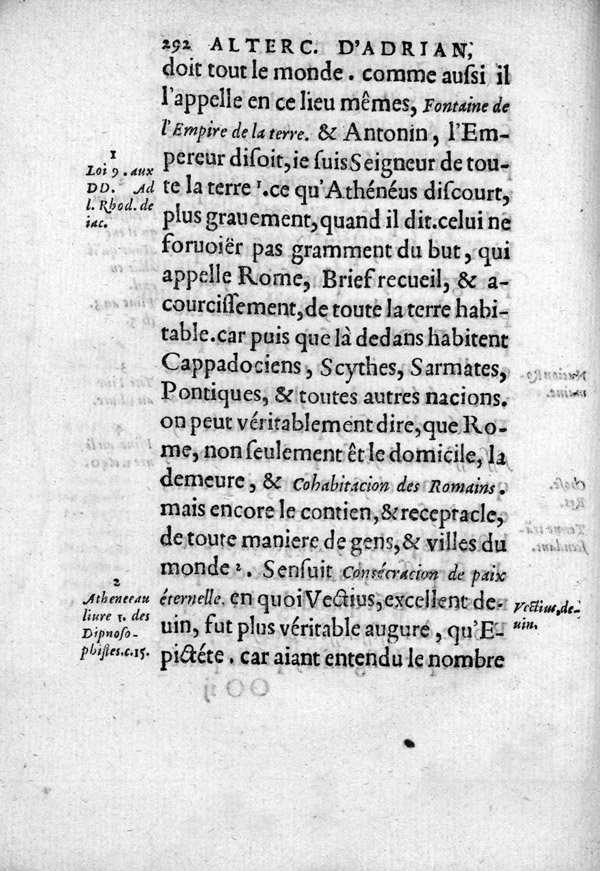 292 ALTERC. D'ADRIAN,
doit tout le monde. comme aussi il
l'appelle en ce lieu mêmes, Fontaine de
l'Empire de la terre. & Antonin, l'Em-
pereur disoit, ie suis Seigneur de tou-
te la terre 1. ce qu'Athénéus discourt,
plus grauement, quand il dit. celui ne
foruoiër pas gramment du but, qui
appelle Rome, Brief recueil, & a-
courcissement, de toute la terre habi-
table. car puis que là dedans habitent
Cappadociens, Scythes, Sarmates,
Pontiques, & toutes autres nacions.
on peut véritablement dire, que Ro-
me, non seulement êt le domicile, la
demeure, & Cohabitacion des Romains.
mais encore le contien, & receptacle,
de toute maniere de gens, & villes du
monde 2. Sensuit Consécracion de paix
éternelle. en quoi Vectius, excellent de-
uin, fut plus véritable augure, qu'E-
pictéte. car aiant entendu le nombre
1
Loi 9. aux
DD. Ad
l. Rhod. de
iac.
2
Atheneeau
liure 1. des
Dipnoso-
phistes. c. 15.
Vectius, de-
uin.